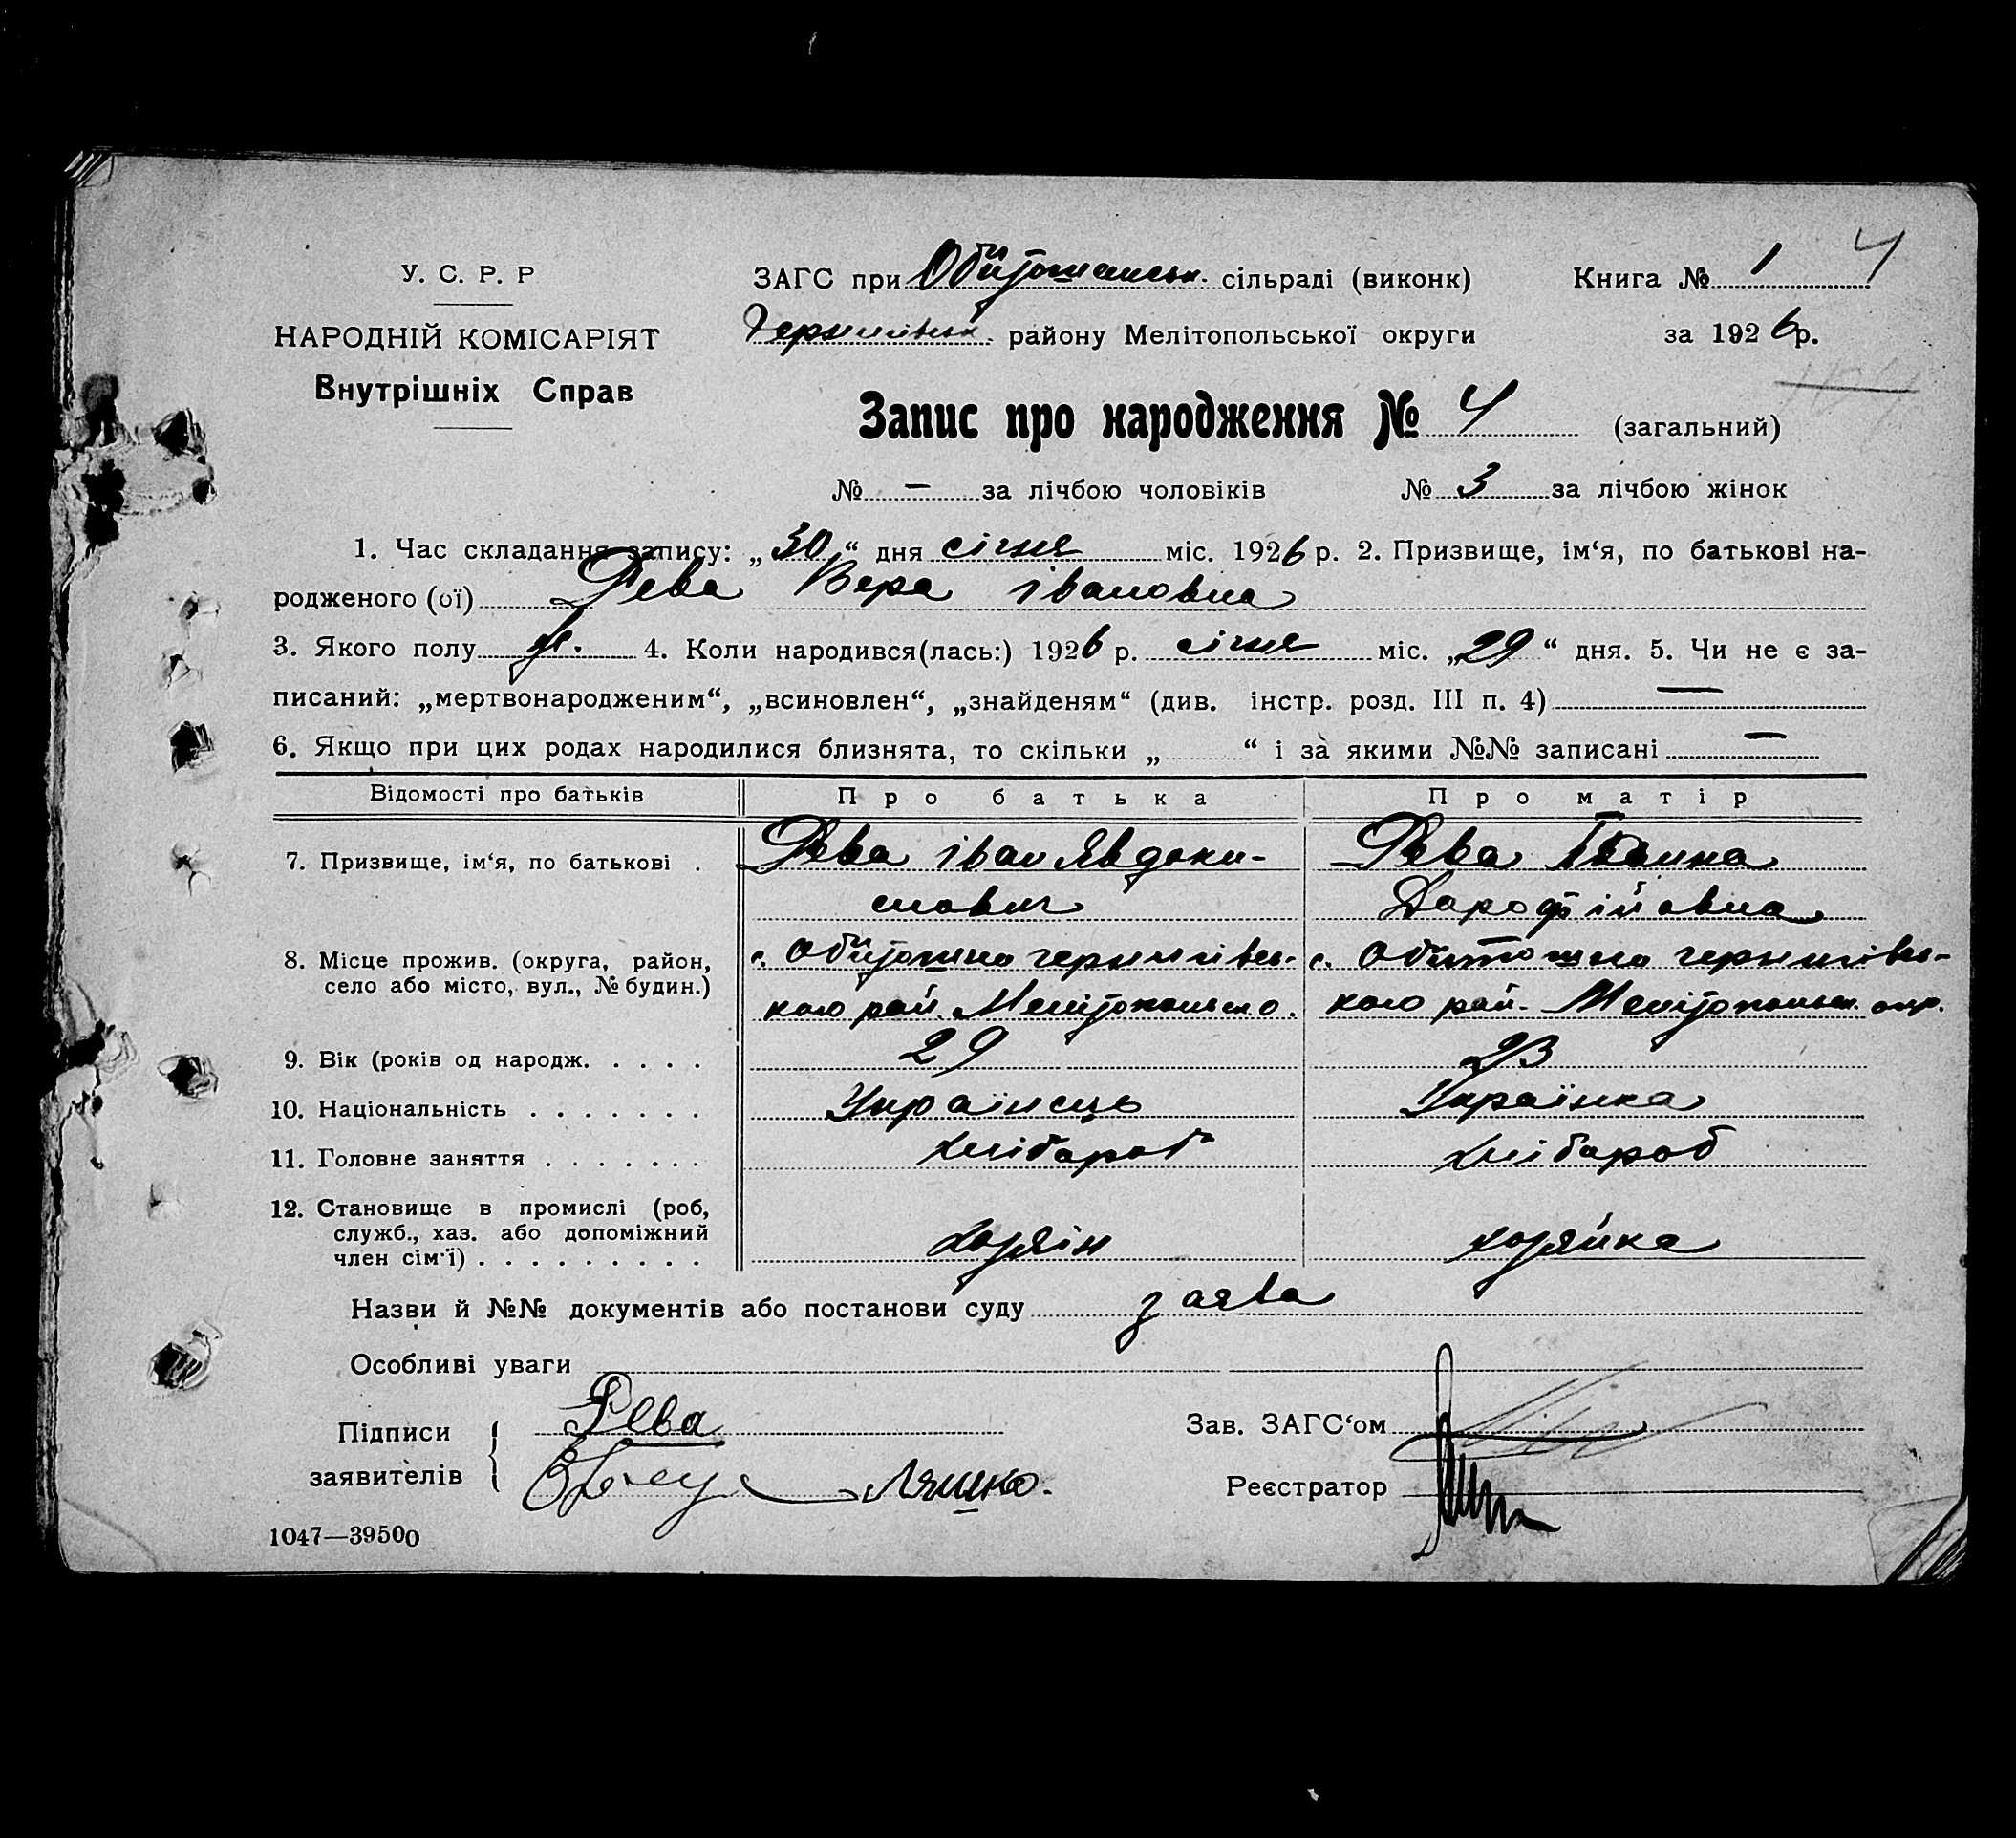 У. С. Р. Р
НАРОДНІЙ КОМІСАРІЯТ
Внутрішніх Справ
ЗАГС при Обитошенськ. сільраді (виконк)
Книга № 1 4
Чернигівськ. району Мелітопольської округи
за 1926 р.
Запис про народження № 4 (загальний)
№ — за лічбою чоловіків № 3 за лічбою жінок
1. Час складання запису: „30“ дня січня міс. 1926 р. 2. Призвище, ім‘я, по батькові на-
родженого (ої) Рева Вера івановна
3. Якого полу ж. 4. Коли народився(лась:) 1926 р. січня міс. „29“ дня. 5. Чи не є за-
писаний: „мертвонародженим“, „всиновлен“, „знайденям“ (див. інстр. розд. III п. 4) —
6. Якщо при цих родах народилися близнята, то скільки „ “ і за якими №№ записані —
Відомості про батьків Про батька Про матір
7. Призвище, ім‘я, по батькові . Рева іван Явдоки- Рева
мович Дарофійовна
8. Місце прожив. (округа, район, с. Обитошно чернигівсь- с. Обитошно чернигівсь-
село або місто, вул., № будин.) кого рай. Мелітопольськ о. кого рай. Мелітопольськ. окр.
9. Вік (років од народж. . . . . 29 23
10. Національність . . . . . . . Українець Українка
11. Головне заняття . . . . . . . хлібароб хлібароб
12. Становище в промислі (роб,
служб., хаз. або допоміжний
член сім‘ї) . . . . . . . . . хозяін хозяйка
Назви й №№ документів або постанови суду заява
Особливі уваги
Підписи Рева
Зав. ЗАГС‘ом
заявителів Ляшко.
Реєстратор
1047—39500